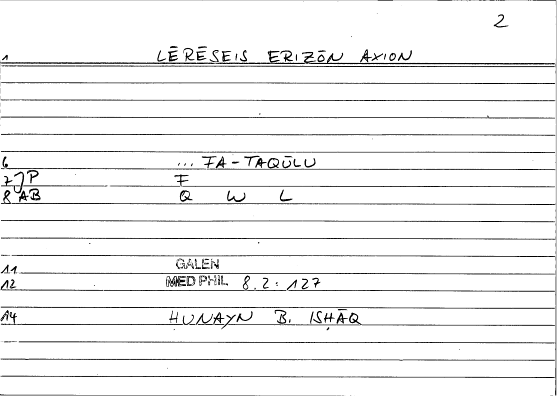 2
1 LĒRĒSEIS ERIZŌN AXION
6 ... FA-TAQŪLU
7 JP F
8 AB Q W L
11 GALEN
12 MED PHIL 8.2:127
14 ḤUNAYN B. ISḤĀQ